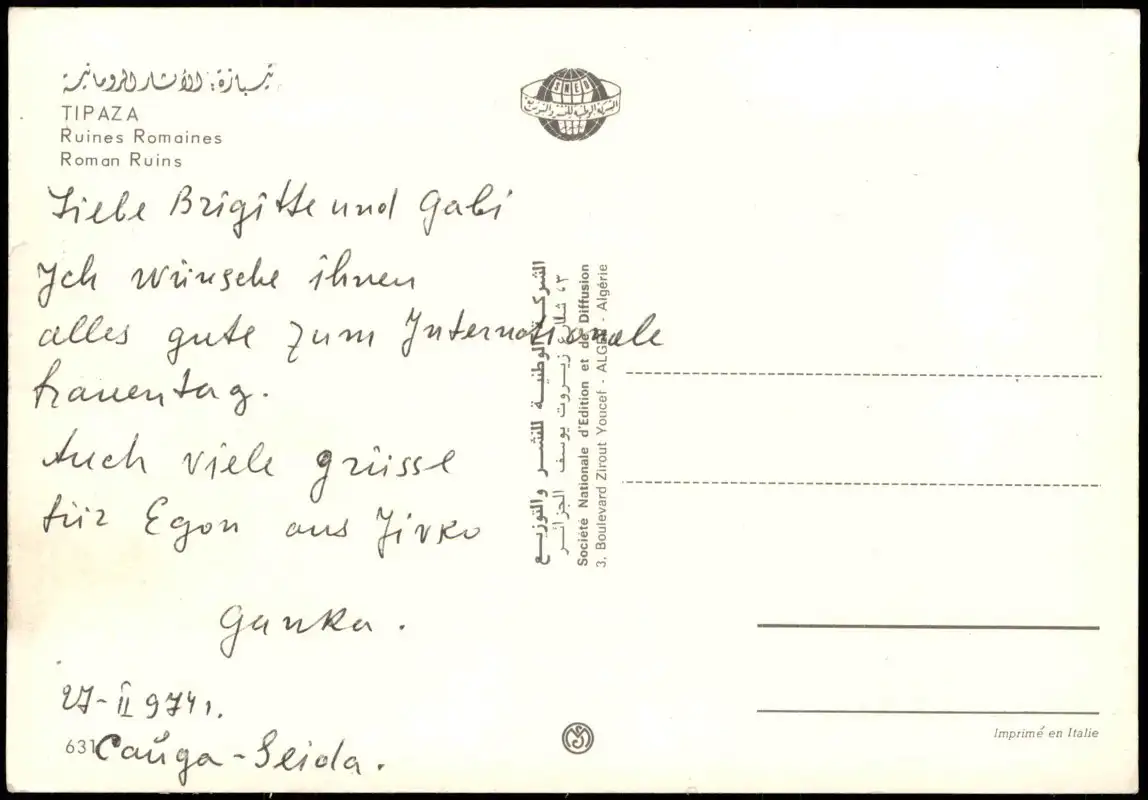 تيبازة: الآثار الرومانية
TIPAZA
Ruines Romaines
Roman Ruins
SNED
الشركة الوطنية للنشر والتوزيع
Liebe Brigitte und Gabi
Ich wünsche ihnen
alles gute zum Internationale
frauentag.
Auch viele grüsse
für Egon aus Jirko
Ganka.
27-II 974 г.
631
Сайда-Seida.
الشركة الوطنية للنشر والتوزيع
٣، شارع زيروت يوسف الجزائر
Société Nationale d'Edition et de Diffusion
3, Boulevard Zirout Youcef - ALGER - Algérie
Imprimé en Italie